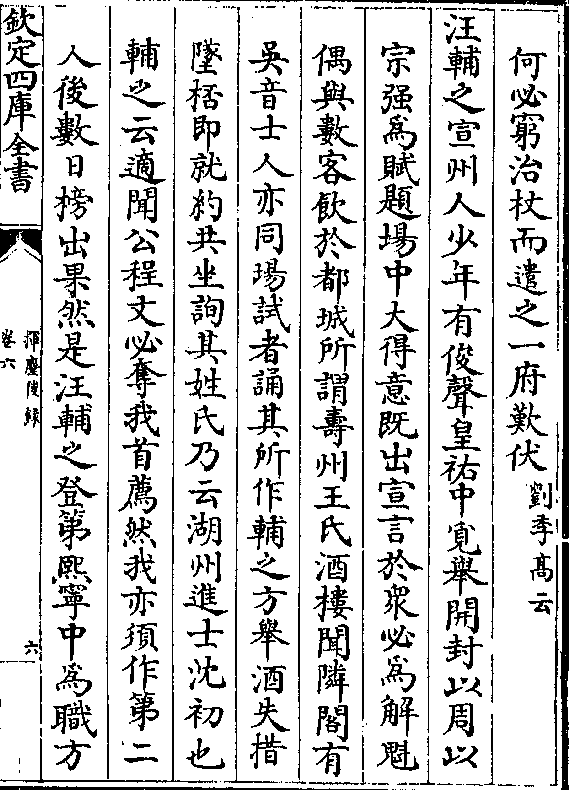 何必窮治杖而遣之一府歎伏劉季髙云
汪輔之宣州人少年有俊聲皇祐中寛舉開封以周以
宗强爲賦題場中大得意既出宣言於衆必爲解魁
偶與數客飲於都城所謂壽州王氏酒樓聞隣閣有
吳音士人亦同場試者誦其所作輔之方舉酒失措
墜桮即就約共坐詢其姓氏乃云湖州進士沈初也
輔之云適聞公程文必奪我首薦然我亦須作第二
人後數日榜出果然是汪輔之登第熈寧中爲職方
欽定四庫全書
揮麈後録
卷六
六